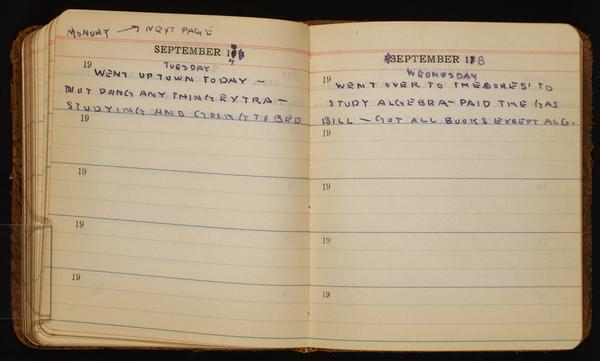 MONDAY → NEXT PAGE
SEPTEMBER 17
TUESDAY
19
WENT UPTOWN TODAY —
NOT DOING ANYTHING EXTRA —
STUDYING AND GOING TO BED
19
19
19
19
SEPTEMBER 18
WEDNESDAY
19
WENT OVER TO THEODORES' TO
STUDY ALGEBRA – PAID THE GAS
BILL — GOT ALL BOOKS EXCEPT ALG.
19
19
19
19